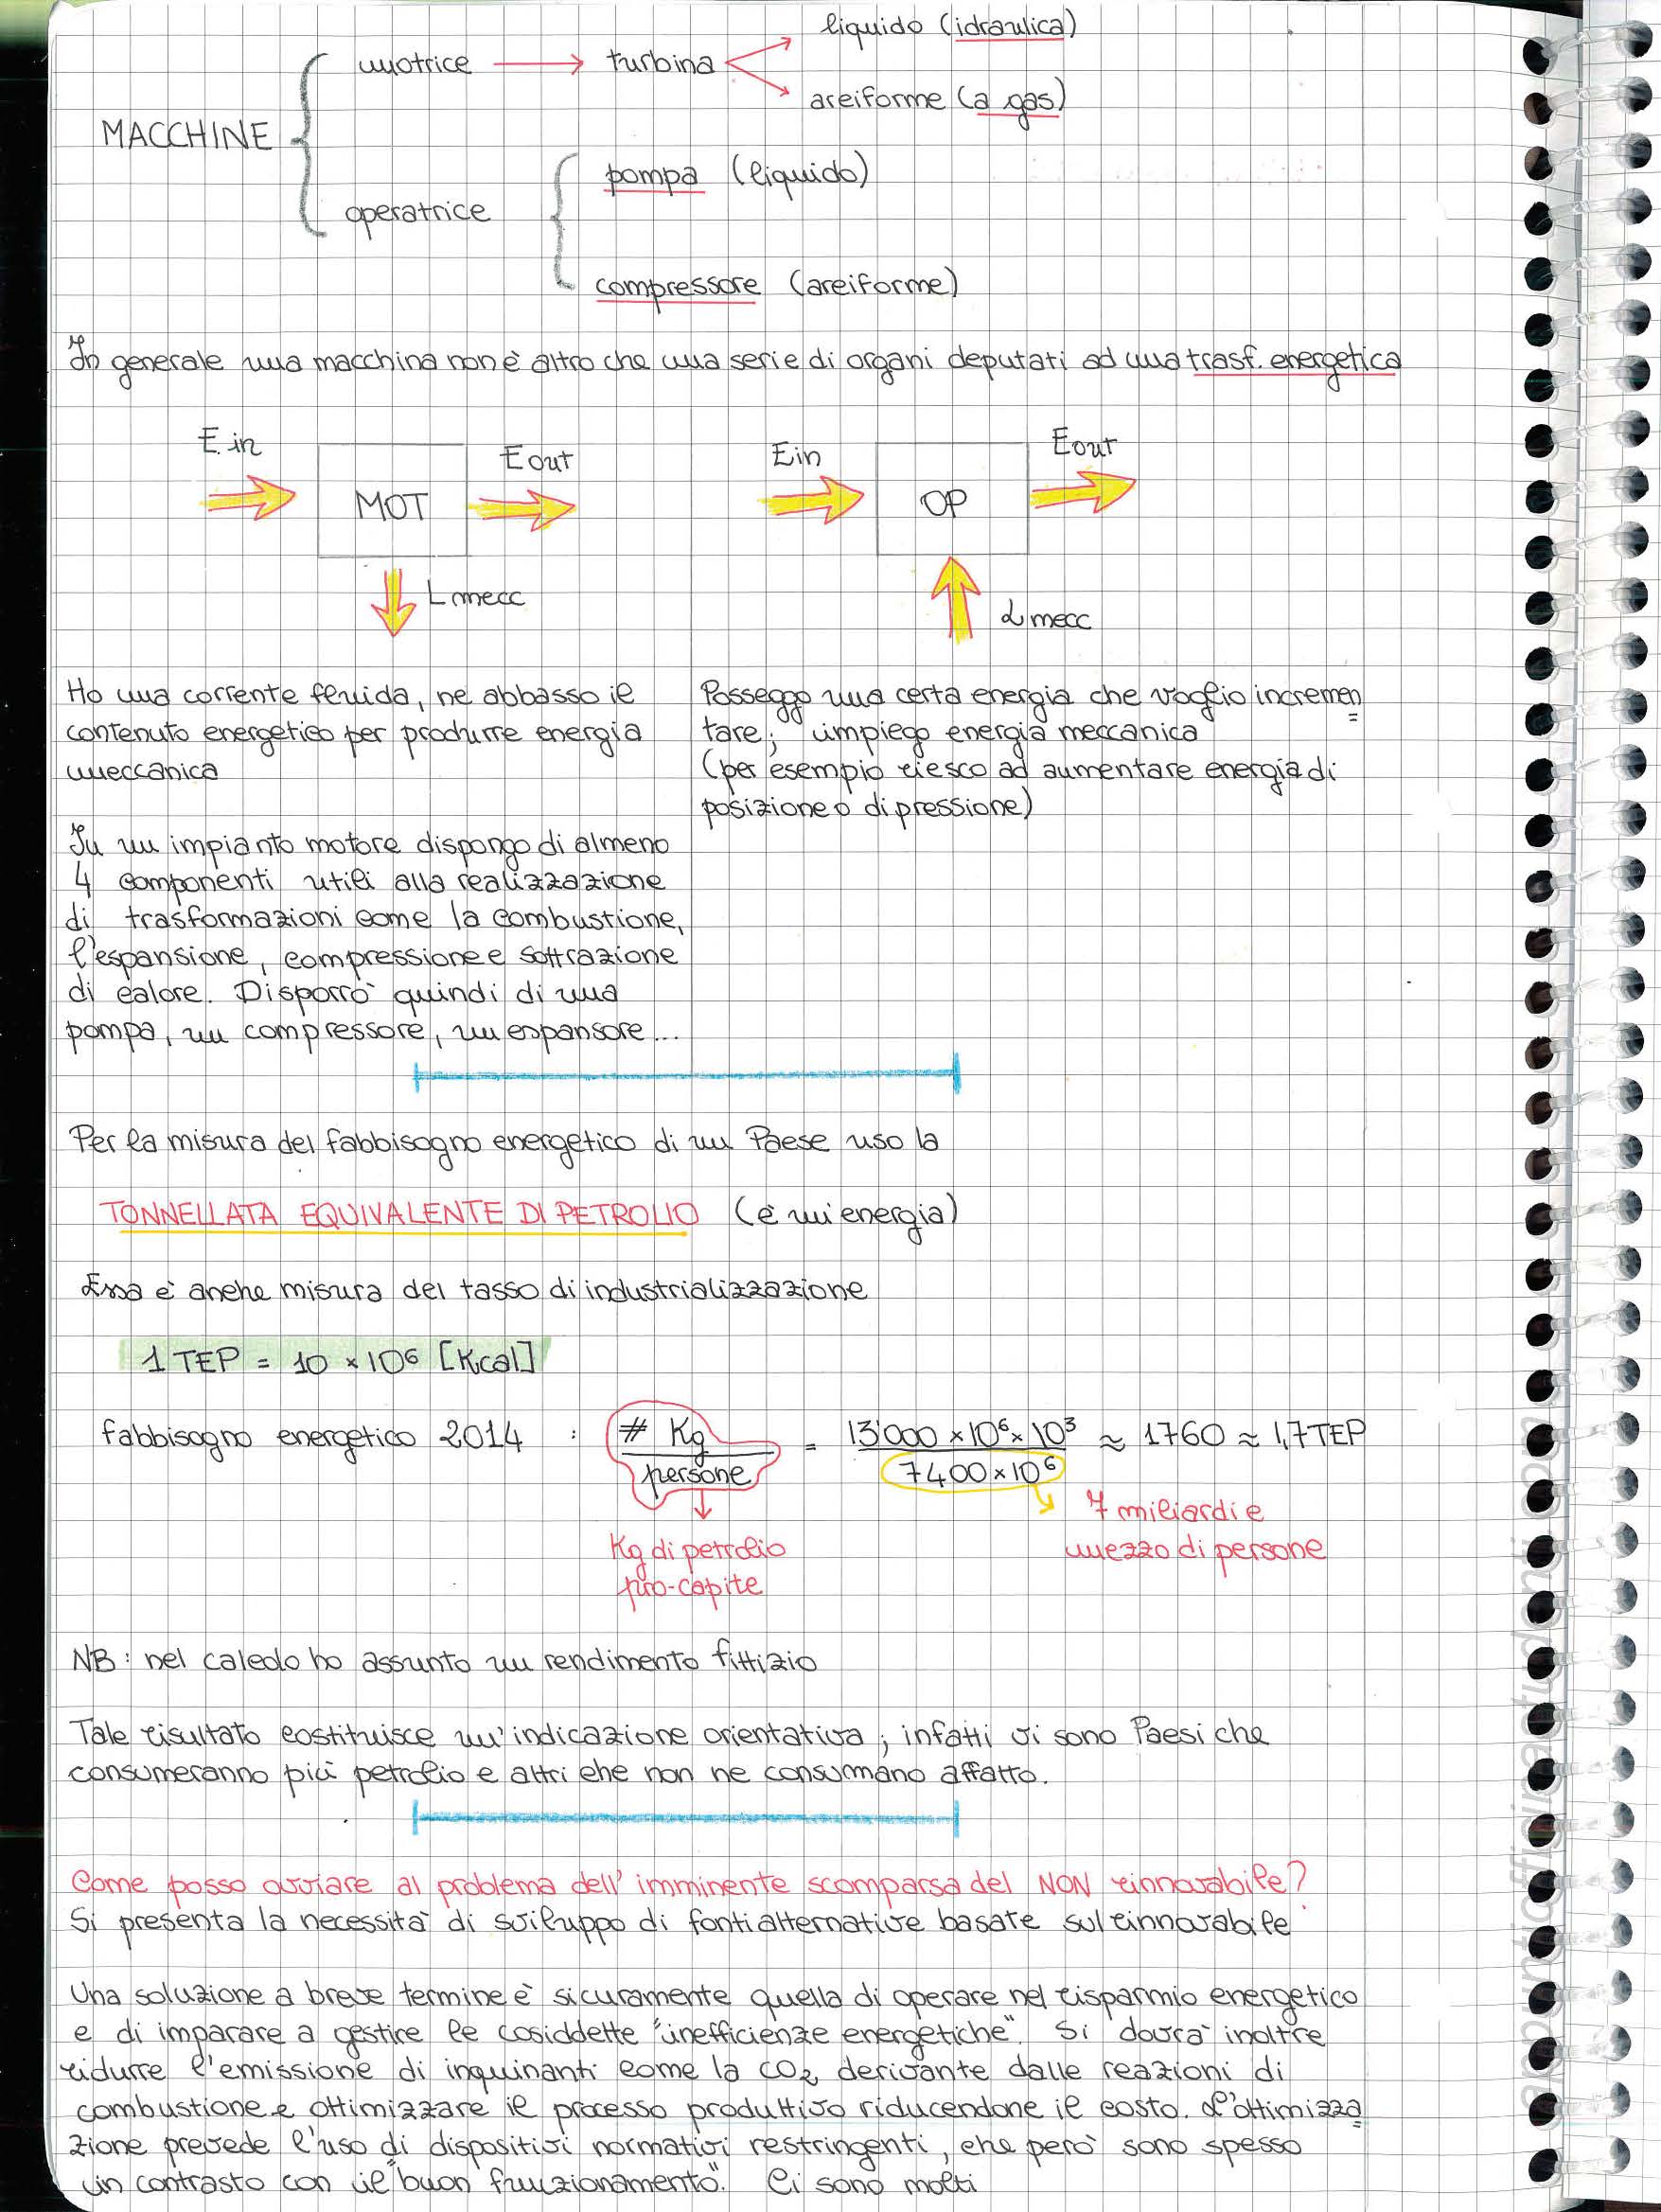 liquido (idraulica)
motrice → turbina
areiforme (a gas)
MACCHINE
pompa (liquido)
operatrice
compressore (areiforme)
In generale una macchina non è altro che una serie di organi deputati ad una trasf. energetica
E in
E out
Ein
Eout
MOT
OP
L mecc
L mecc
Ho una corrente fluida, ne abbasso il
contenuto energetico per produrre energia
meccanica
Posseggo una certa energia che voglio incremen
tare; impiego energia meccanica
(per esempio riesco ad aumentare energia di
posizione o di pressione)
In un impianto motore dispongo di almeno
4 componenti utili alla realizzazione
di trasformazioni come la combustione,
l'espansione, compressione e sottrazione
di calore. Disporrò quindi di una
pompa, un compressore, un espansore...
Per la misura del fabbisogno energetico di un Paese uso la
TONNELLATA EQUIVALENTE DI PETROLIO (è un'energia)
Essa è anche misura del tasso di industrializzazione
1 TEP = 10 × 10⁶ [Kcal]
fabbisogno energetico 2014 : # Kg / persone = 13'000 × 10⁶ × 10³ / 7400 × 10⁶ ≈ 1760 ≈ 1,7 TEP
7 miliardi e
mezzo di persone
Kg di petrolio
pro-capite
NB: nel calcolo ho assunto un rendimento fittizio
Tale risultato costituisce un'indicazione orientativa; infatti vi sono Paesi che
consumeranno più petrolio e altri che non ne consumano affatto.
Come posso ovviare al problema dell'imminente scomparsa del NON rinnovabile?
Si presenta la necessità di sviluppo di fonti alternative basate sul rinnovabile
Una soluzione a breve termine è sicuramente quella di operare nel risparmio energetico
e di imparare a gestire le cosiddette "inefficienze energetiche". Si dovrà inoltre
ridurre l'emissione di inquinanti come la CO₂ derivante dalle reazioni di
combustione e ottimizzare il processo produttivo riducendone il costo. L'ottimizza
zione prevede l'uso di dispositivi normativi restringenti, che però sono spesso
in contrasto con il "buon funzionamento". Ci sono molti